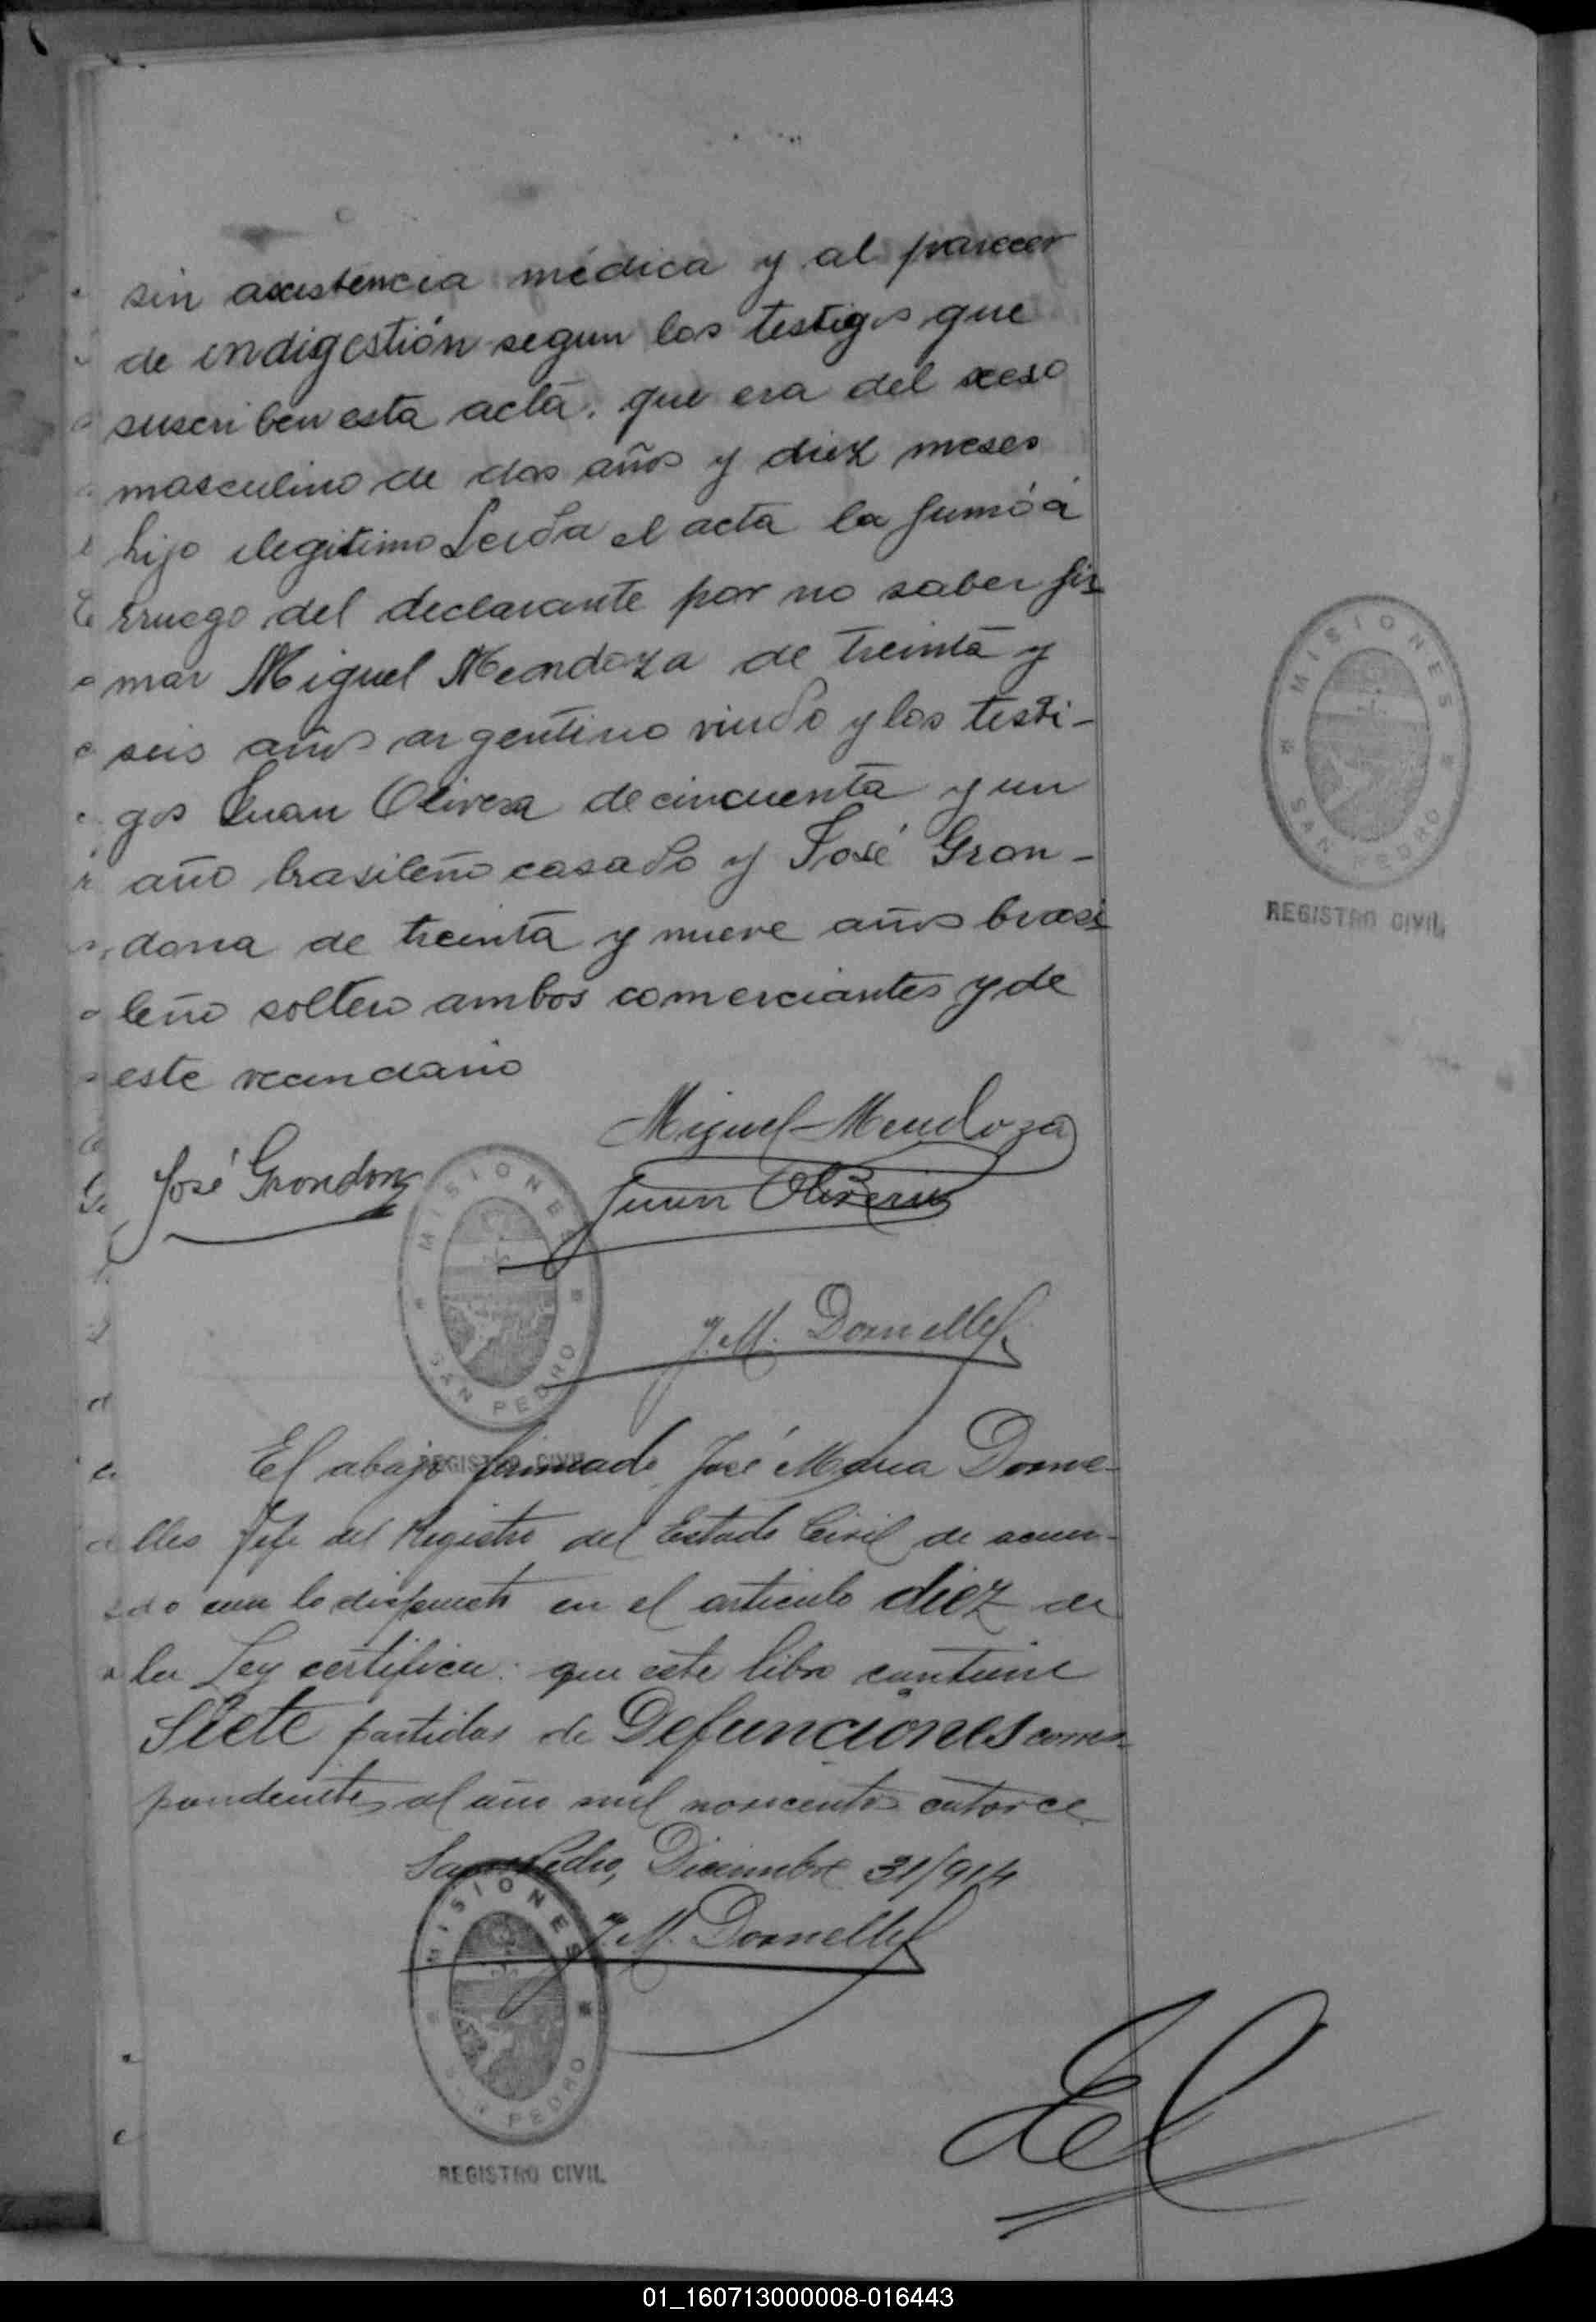 sin axistencia médica y al parecer
de indigestión segun los testigos que
suscriben esta acta. que era del sexso
masculino de dos años y diez meses
hijo ilegitimo Leida el acta la fumó á
rruego del declarante por no saber fir
mar Miguel Mendoza de treinta y
seis años argentino viudo y los testi-
gos Juan Olivera de cincuenta y un
año brasileño casado y José Gron-
dona de treinta y nueve años brasi
leño soltero ambos comerciantes y de
este vecindario
Miguel Mendoza
José Grondona
Juan Olivera
MISIONES
SAN PEDRO
REGISTRO CIVIL
J. M. Dornelles
MISIONES
SAN PEDRO
REGISTRO CIVIL
El abajo firmado José Maria Dorne-
lles Jefe del Registro del Estado Civil de acuer-
do con lo dispuesto en el articulo diez de
la Ley certifica: que este libro contiene
Siete partidas de Defunciones corres-
pondientes al año mil novecientos catorce
San Pedro, Diciembre 31/914
J. M. Dornelles
MISIONES
SAN PEDRO
REGISTRO CIVIL
01_160713000008-016443